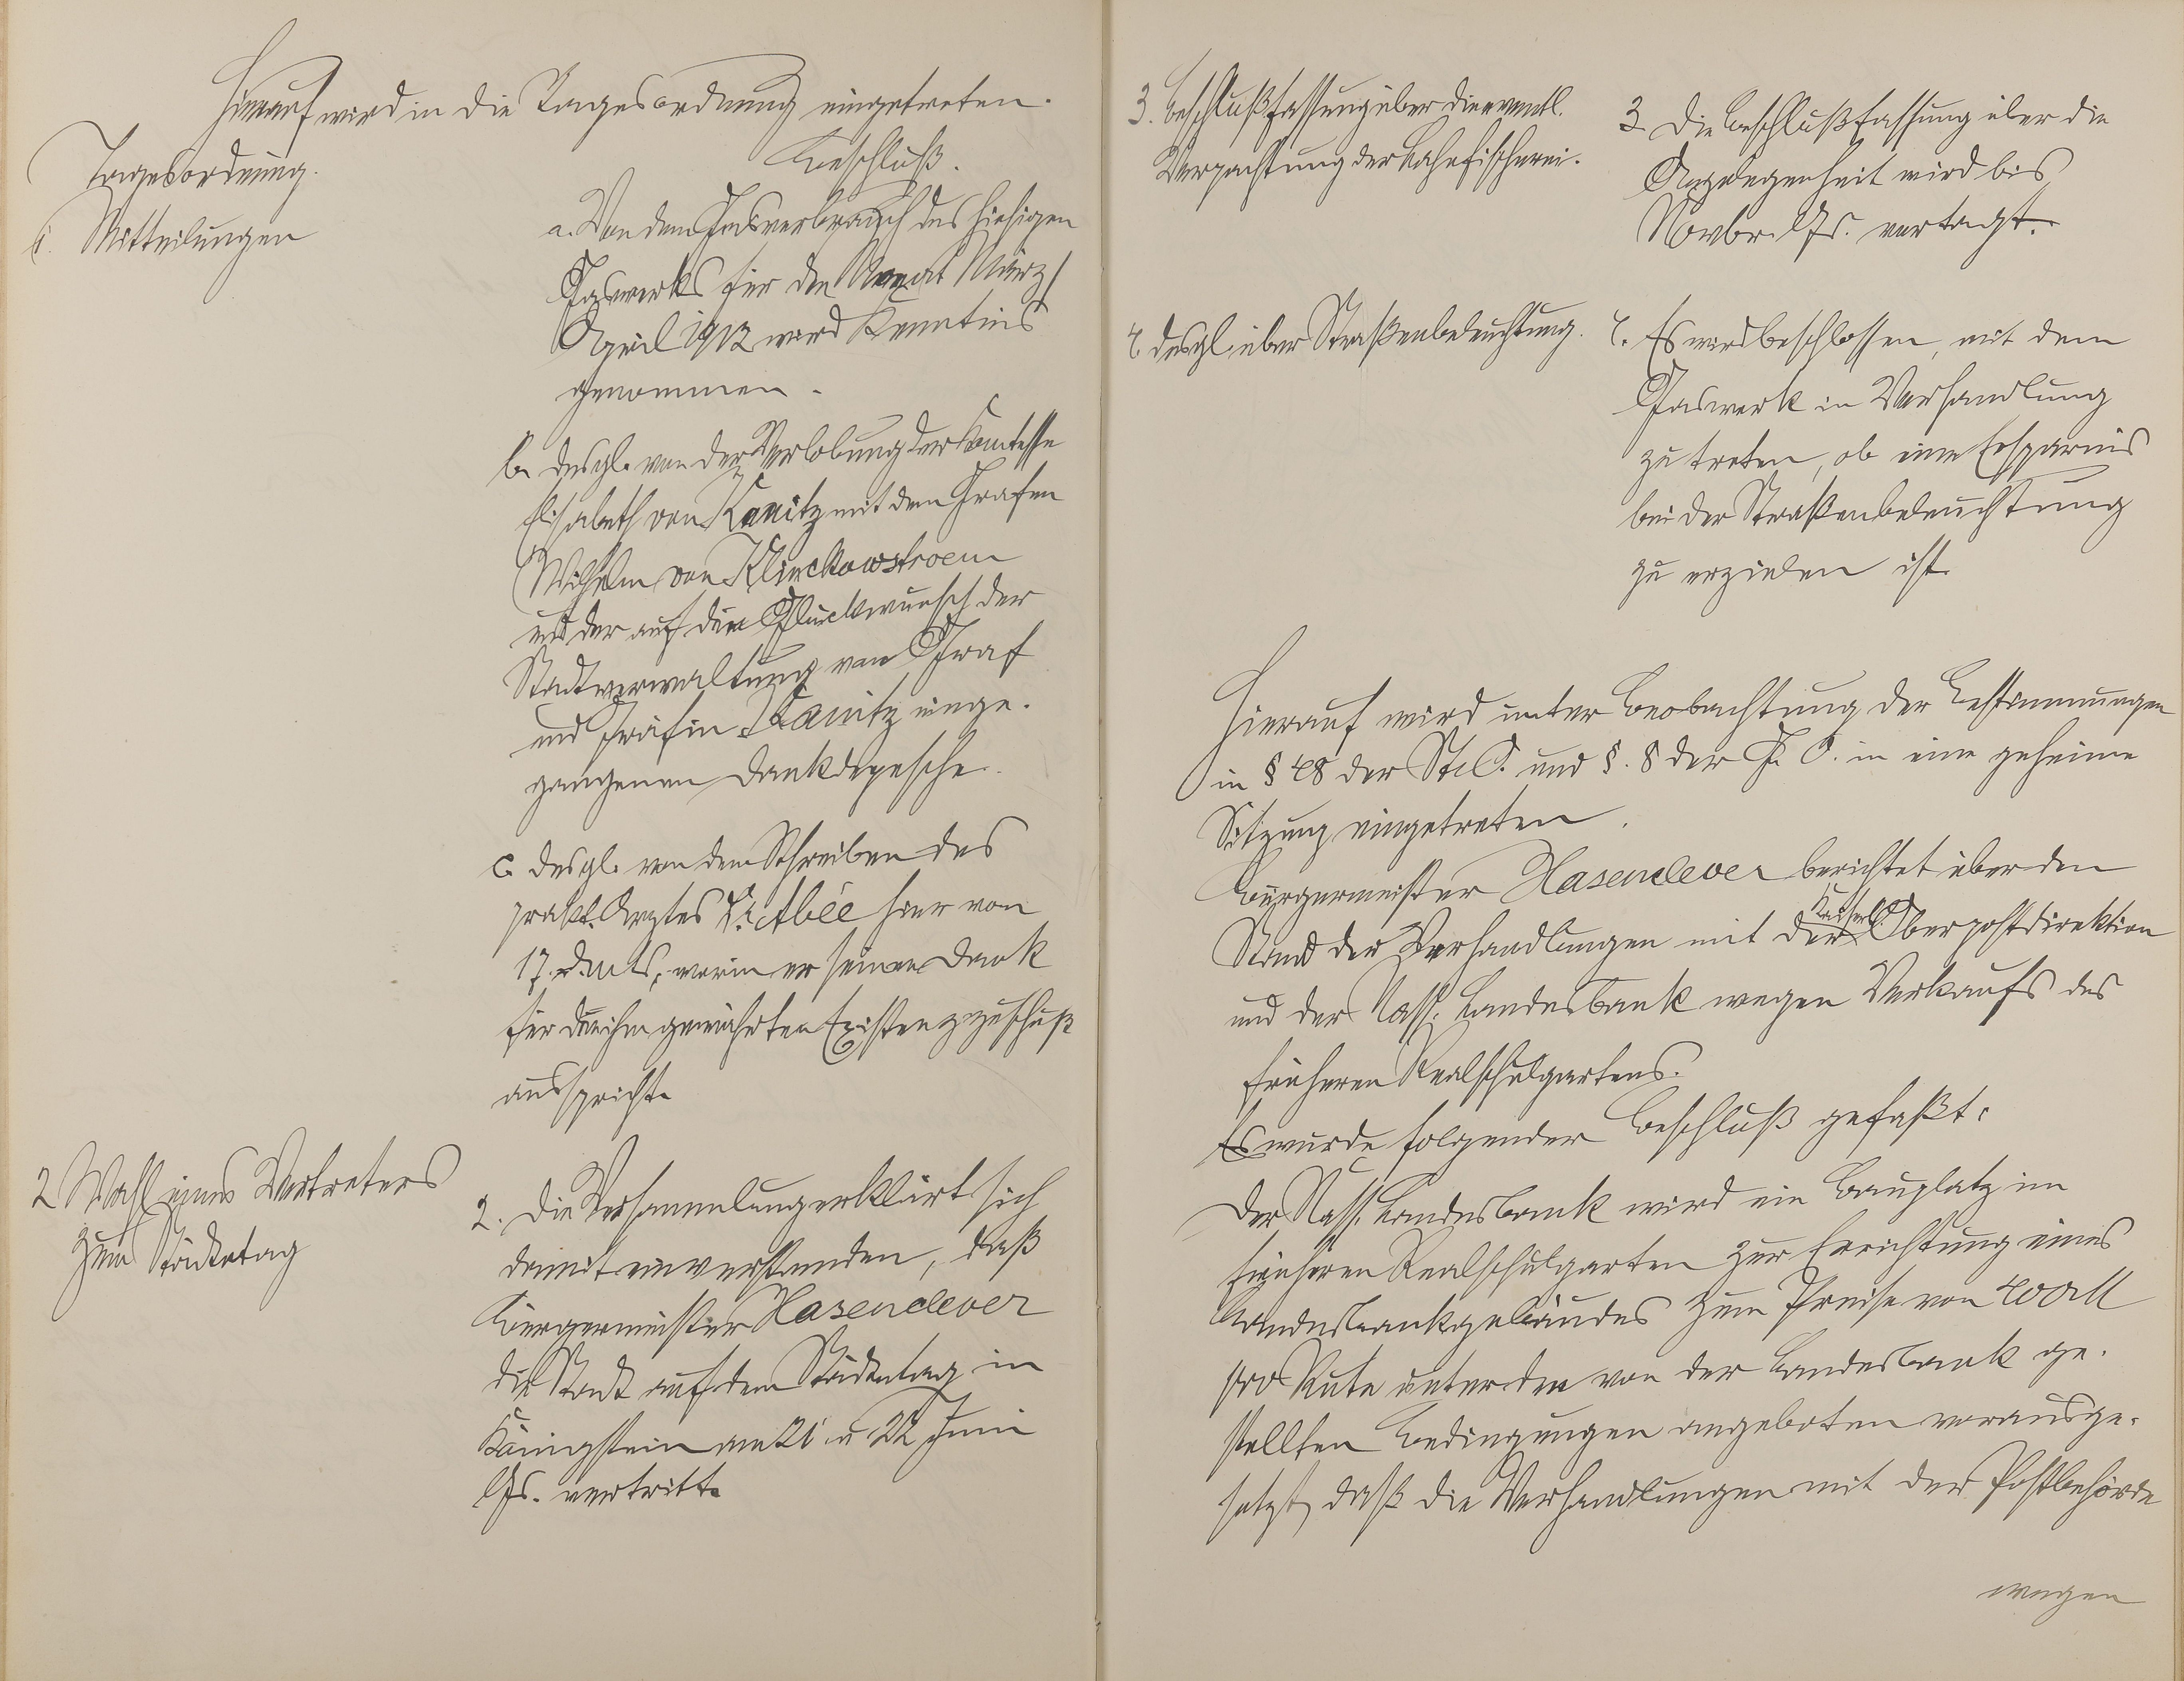 Hierauf wird in die Tagesordnung eingetreten.
Tagesordnung.
Beschluß.
1. Mitteilungen
a. Von dem Gasverbrauch des hiesigen
Gaswerks für den Monat März/
April 1912 wird Kenntnis
genommen.
b. desgl. von der Verlobung der Komtesse
Elisabeth von Kanitz mit dem Grafen
Wilhelm von Klinckowstroem
und der auf den Glückwunsch der
Stadtverwaltung von Graf
und Gräfin Kanitz einge-
gangenen Dankdepesche.
c. desgl. von dem Schreiben des
prakt. Arztes Dr. Abée hier von
17. d. Mts., worin er seinen Dank
für den ihm gewährten Existenzzuschuß
ausspricht.
2 Wahl eines Vertreters
zum Städtetag
2. Die Versammlung erklärt sich
damit einverstanden, daß
Bürgermeister Hasenclever
die Stadt auf dem Städtetag in
Königstein am 21 u 22 Juni
lfs. vertritt.
3. Beschlußfassung über die eventl.
Verpachtung der Lahnfischerei.
3. Die Beschlußfassung über die
Angelegenheit wird bis
Novbr. lfs. vertagt.
4. desgl. über Straßenbeleuchtung.
4. Es wird beschlossen, mit dem
Gaswerk in Verhandlung
zu treten, ob eine Ersparnis
bei der Straßenbeleuchtung
zu erzielen ist.
Hierauf wird unter Beobachtung der Bestimmungen
in § 48 der St. O. und §. 8 der G. O. in eine geheime
Sitzung eingetreten.
Bürgermeister Hasenclever berichtet über den
Stand der Verhandlungen mit der Kaiserl. Oberpostdirektion
und der Nass. Landesbank wegen Verkaufs des
früheren Realschulgartens.
Es wurde folgender Beschluß gefaßt:
Der Nass. Landesbank wird ein Bauplatz im
früheren Realschulgarten zur Errichtung eines
Landesbankgebäudes zum Preise von 400 M
pro Rute unter den von der Landesbank ge-
stellten Bedingungen angeboten vorausge-
setzt, daß die Verhandlungen mit der Postbehörde
wegen